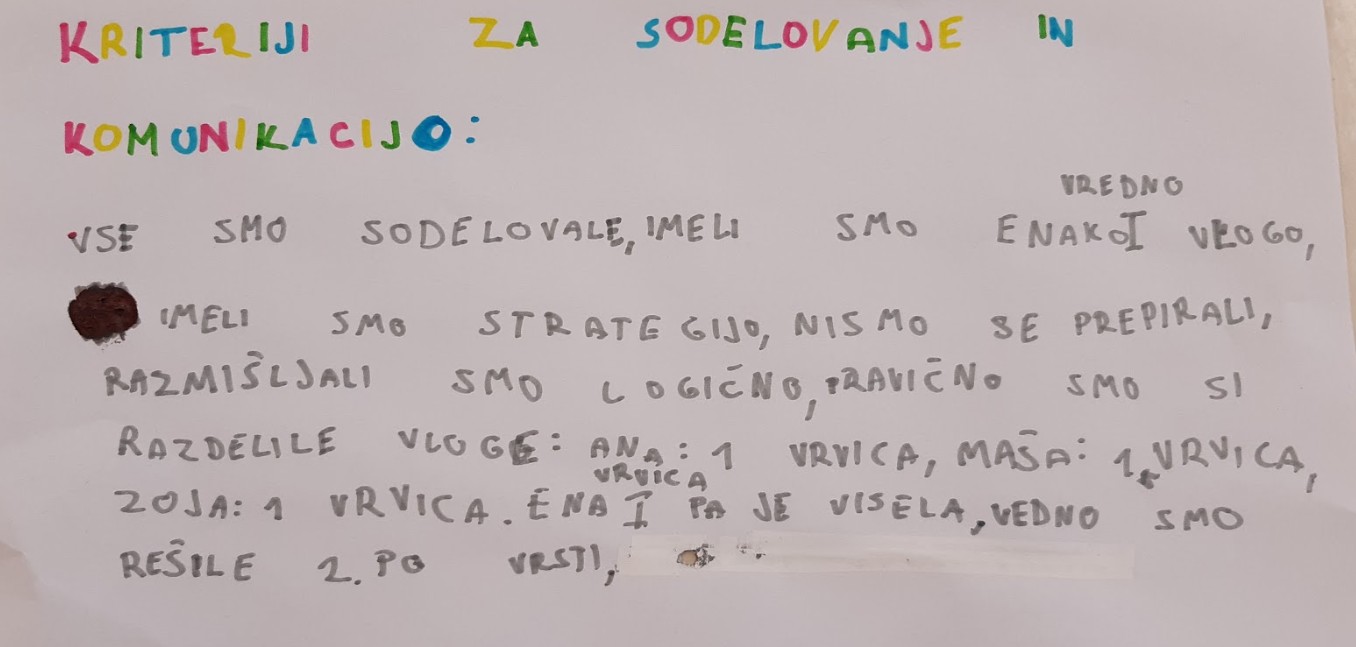 KRITERIJI ZA SODELOVANJE IN
KOMUNIKACIJO:
VREDNO
VSE SMO SODELOVALE, IMELI SMO ENAKO VLOGO,
IMELI SMO STRATEGIJO, NISMO SE PREPIRALI,
RAZMIŠLJALI SMO LOGIČNO, PRAVIČNO SMO SI
RAZDELILE VLOGE: ANA: 1 VRVICA, MAŠA: 1 VRVICA,
VRVICA
ZOJA: 1 VRVICA. ENA PA JE VISELA, VEDNO SMO
REŠILE 2. PO VRSTI,